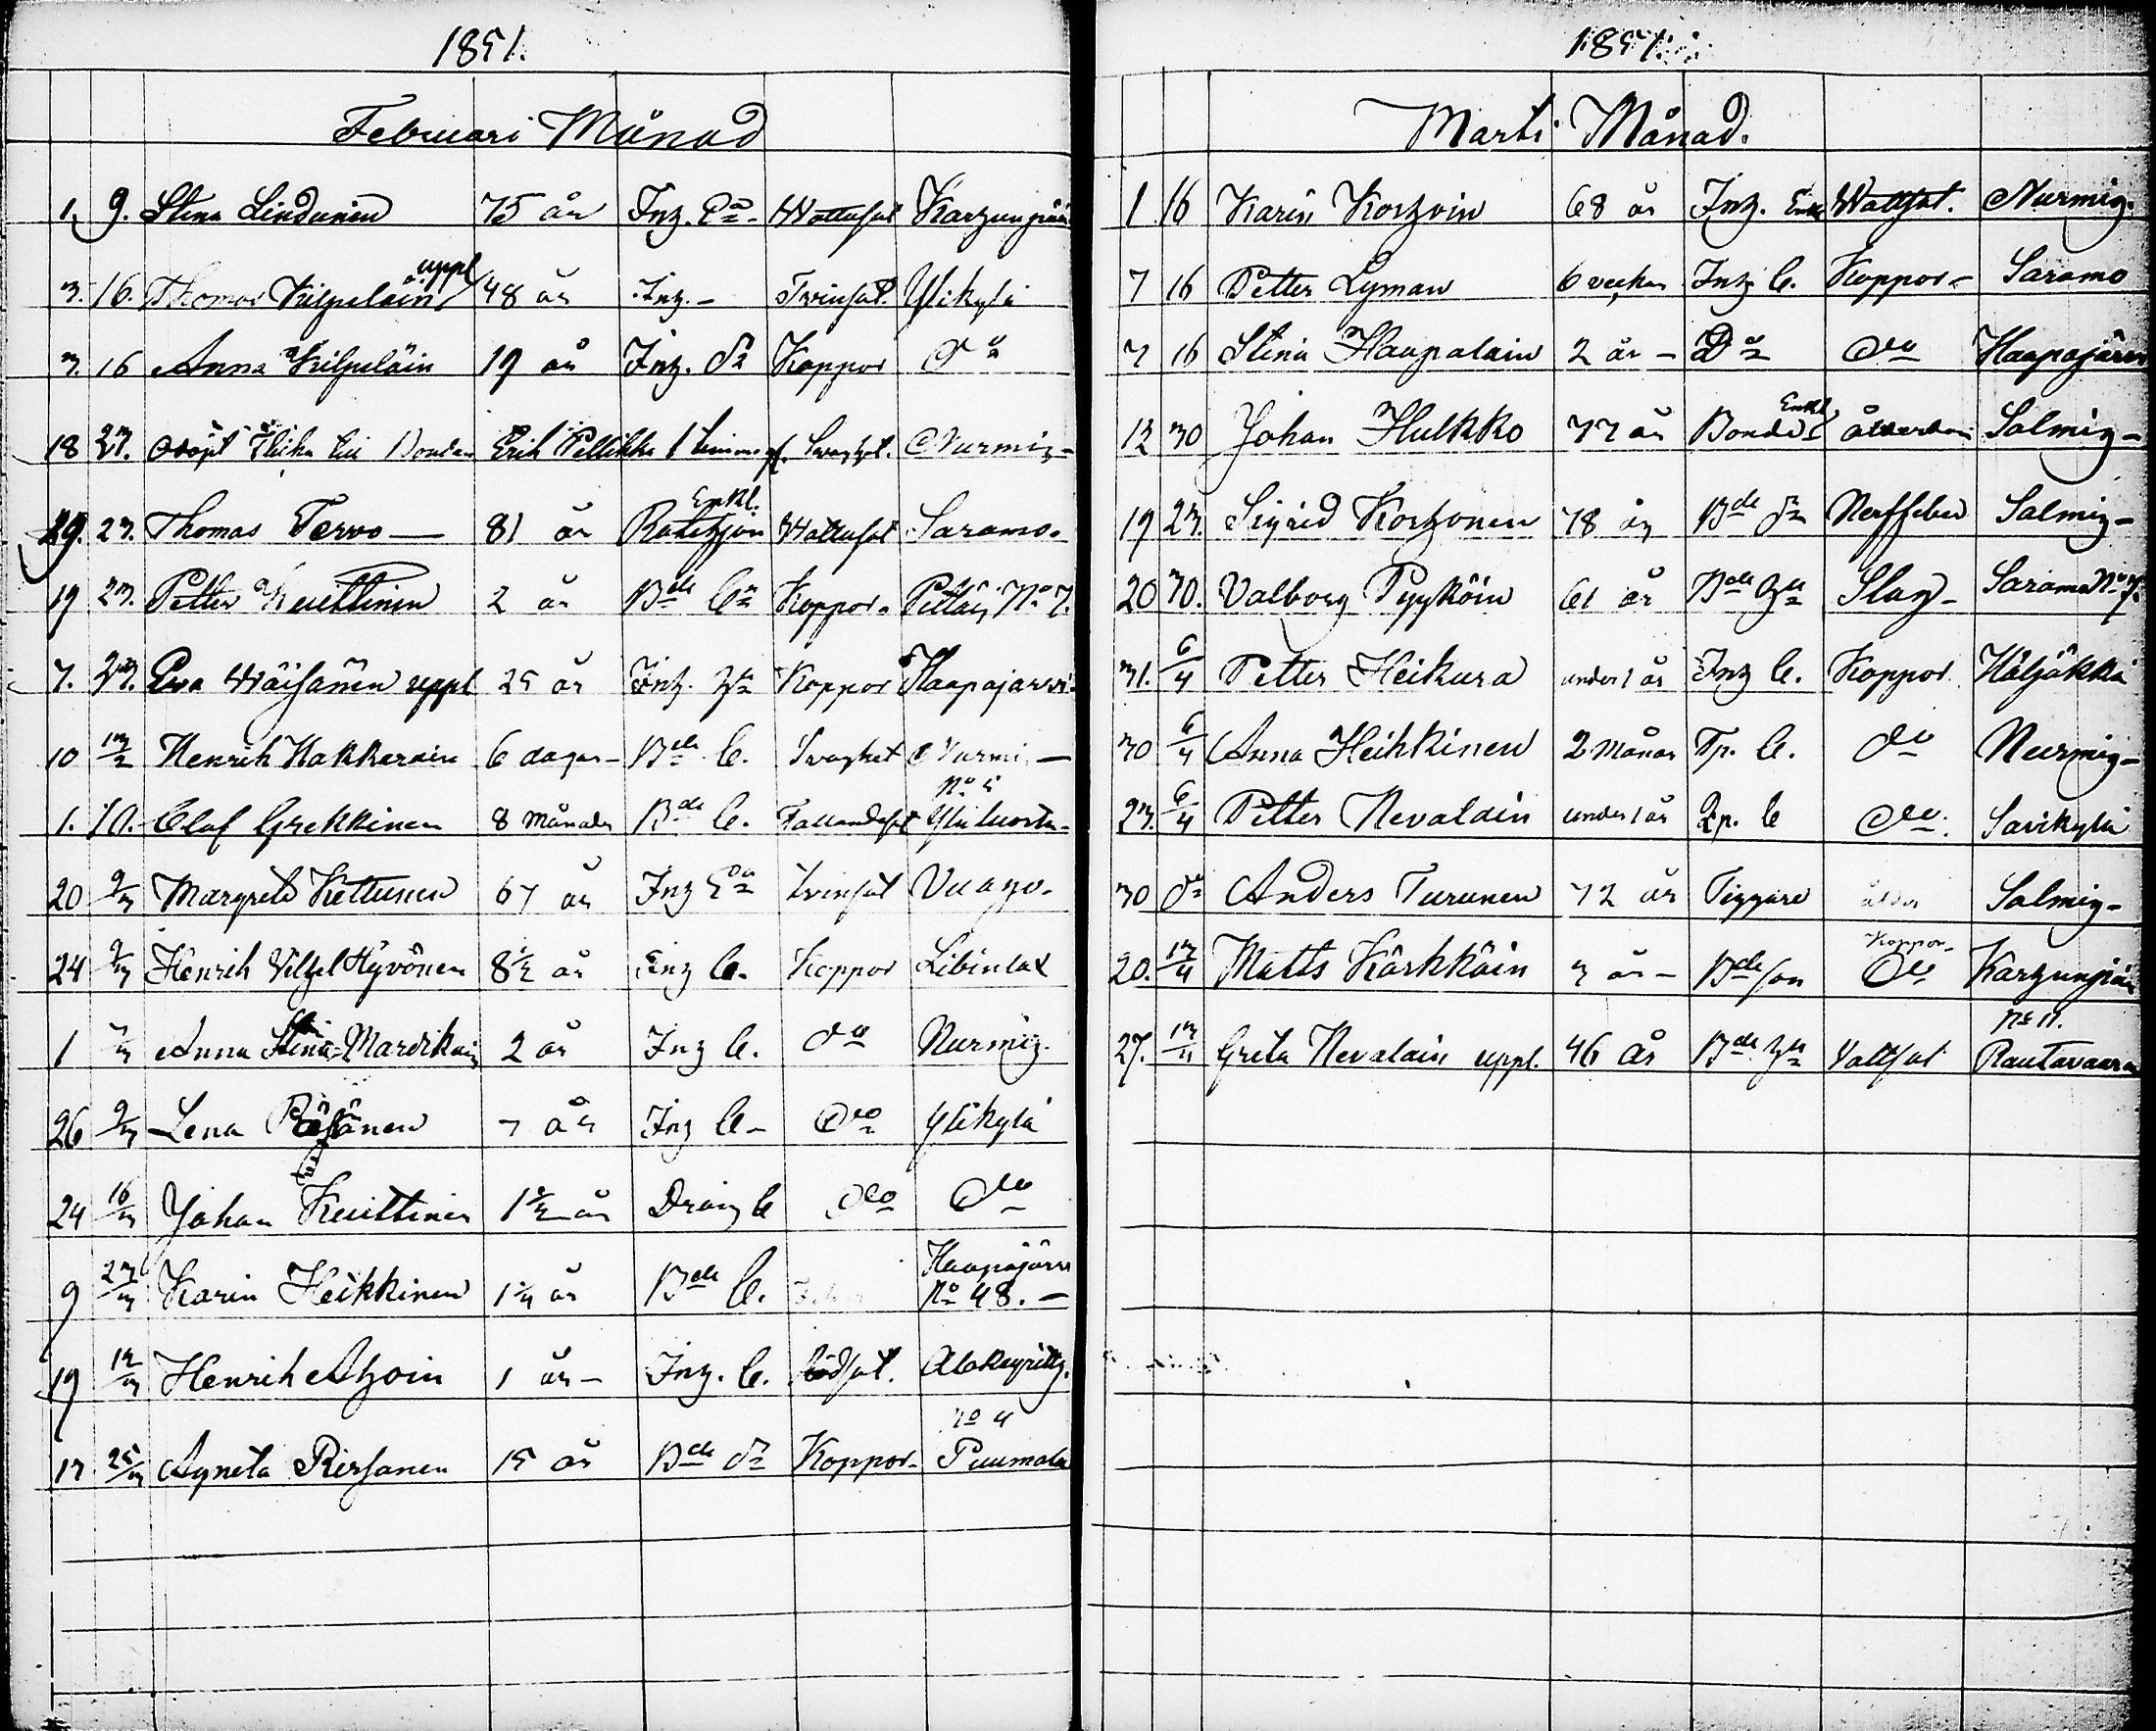 1851.
Februari Månad
1. 9. Stina Lindunin 75 år Inh. Wattusot
3. 16. Thomas Kilpeläin uppl 48 år Inh. - Tvinsot. Ylikylä
3. 16 Anna Kilpeläin 19 år Inh. dr Koppor do
18 23. Erik Pellikka Nurmiz-
19. 23. Thomas Tervo — 81 år Enkl. Wattusot Saramo.
19 23. Petter Kuittinen 2 år Bde Koppor- No 7.
7. 23. Eva Wäisänen uppl 25 år Inh. Koppor Haapajärvi
10 13/2 Henrik Hakkarain 6 dagar - Bde b. Svaghet Nurmi -
1. 10. Olof Grekkinen 8 månader Bde b. Fallandesot No 5
20 9/3 Margreta Kettunen 67 år Inh Tvinsot Vuago-
24 9/3 Henrik Hyvönen 8½ år Inh b. Koppor Libinlax
1 Anna Stina Mardikain 2 år Inh b. do Nurmiz.
26 9/3 Lena Räsänen 7 år Inh b- do Ylikylä
24 16/3 Johan Kuittinen 1½ år Dräng b do do
9 23/3 Karin Heikkinen 1¼ år Bde b. Haapajärvi No 48. -
19 Henrik Ahoin 1 år - Inh. b. Rödsot.
17 25/3 Agneta Rissanen 15 år Bde dr Koppor- No 4 Puumala
1851.
Marti Månad.
1 16 Karin Korhoin 68 år Inh. Enka Wattsot. Nurmiz.
7 16 Petter Lyman 6 veckor Inh b. Koppor- Saramo
7 16 Stina Haapalain 2 år - Do do Haapajärvi
12 30 Johan Hulkko 77 år Bonde Enkl. Salmiz-
19 23. Sigrid Korhonen 78 år Bde Nerffeber Salmiz-
20 30. Valborg Pyyköin 61 år Bde Slag- Saramo No
31. 6/4 Petter Heikura under 1 år Inh b. Koppor Höljäkkä
30 6/4 Anna Heikkinen 2 Månar Tp. b. do Nurmiz-
23. 6/4 Petter Nevalain under 1 år b do. Savikylä
30 do Anders Turunen 72 år Tiggare ålder Salmiz-
20. 13/4 Matts Kärkkäin 3 år - Bde son Koppor- do
27. 13/4 Greta Nevalain uppl. 46 år Bde Vattsot No 11. Rautavaara